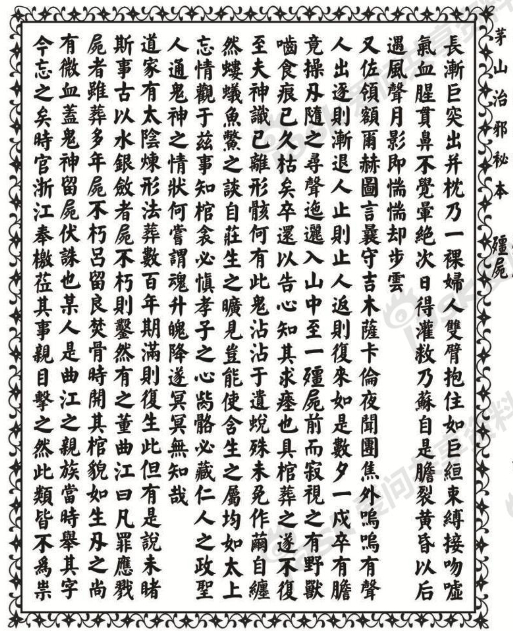 茅山治邪秘本
殭屍
長漸巨突出并枕乃一裸婦人雙臂抱住如巨絙束縛接吻噓
氣血腥貫鼻不覺暈絕次日得灌救乃蘇自是膽裂黃昏以后
遇風聲月影即惴惴却步雲
又佐領額爾赫圖言曩守吉木薩卡倫夜聞團焦外嗚嗚有聲
人出逐則漸退人止則止人返則復來如是數夕一戍卒有膽
竟操刃隨之尋聲迤邐入山中至一殭屍前而寂視之有野獸
嚙食痕已久枯矣卒還以告心知其求瘞也具棺葬之遂不復
至夫神識已離形骸何有此鬼沾沾于遺蛻殊未免作繭自纏
然螻蟻魚鱉之談自莊生之曠見豈能使含生之屬均如太上
忘情觀于茲事知棺衾必慎孝子之心胔骼必藏仁人之政聖
人通鬼神之情狀何嘗謂魂升魄降遂冥冥無知哉
道家有太陰煉形法葬數百年期滿則復生此但有是說未睹
斯事古以水銀斂者屍不朽則鑿然有之董曲江曰凡罪應戮
屍者雖葬多年屍不朽呂留良焚骨時開其棺貌如生刃之尚
有微血蓋鬼神留屍伏誅也某人是曲江之親族當時舉其字
今忘之矣時官浙江奉檄蒞其事親目擊之然此類皆不為祟